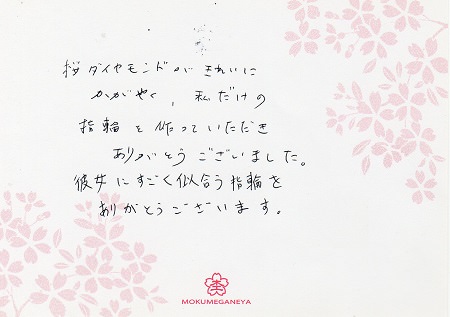 桜ダイヤモンドがきれいに
かがやく、私だけの
指輪を作っていただき
ありがとうございました。
彼女にすごく似合う指輪を
ありがとうございます。
MOKUMEGANEYA